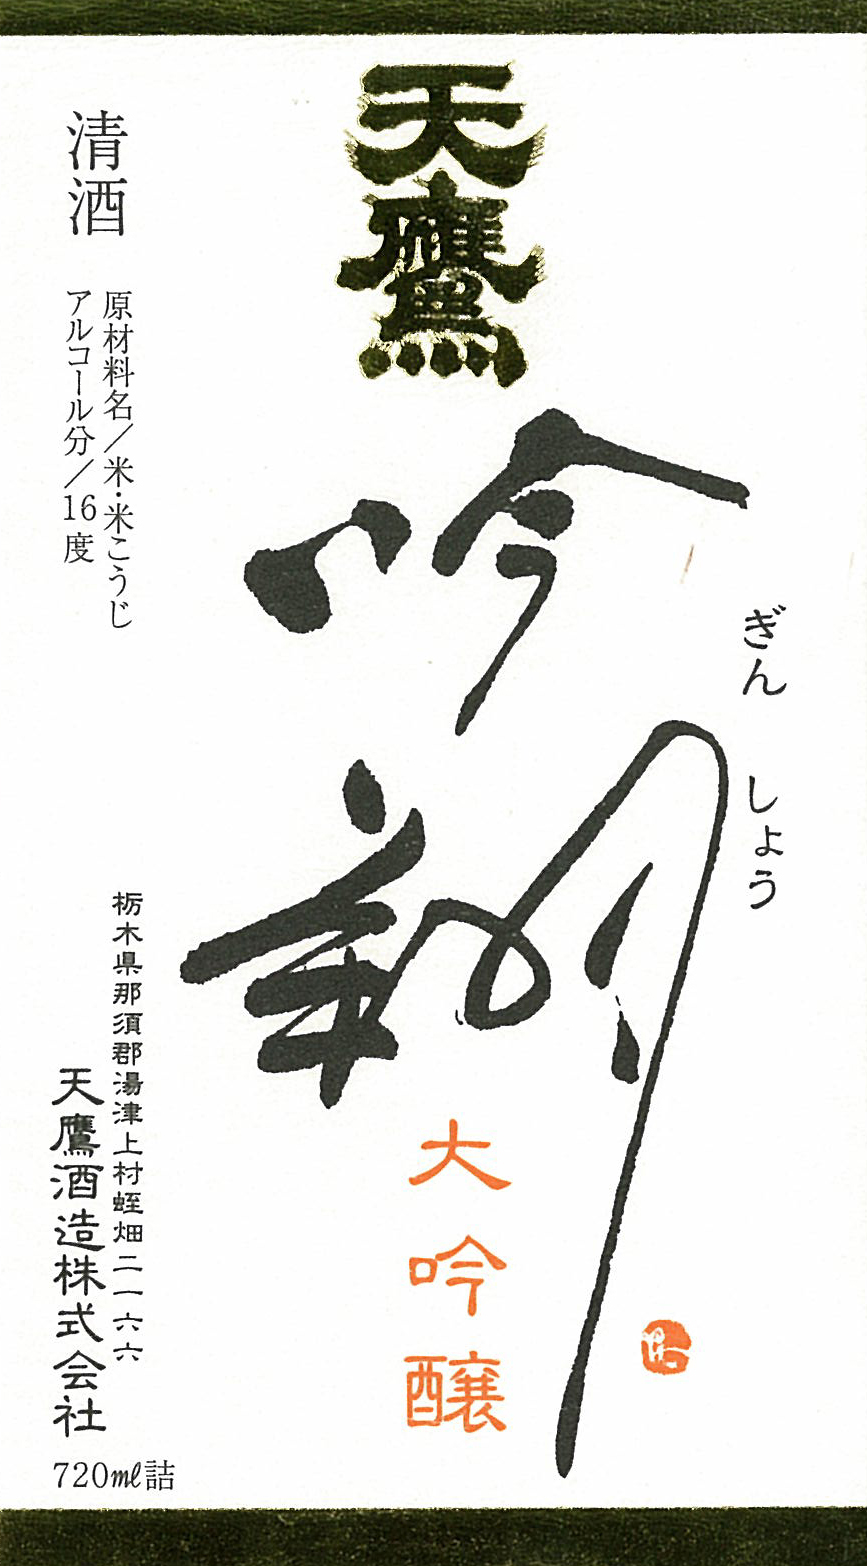 天鷹
吟翔
ぎん しょう
大吟醸
清酒
原材料名／米・米こうじ
アルコール分／16度
栃木県那須郡湯津上村蛭畑二一六六
天鷹酒造株式会社
720ml詰